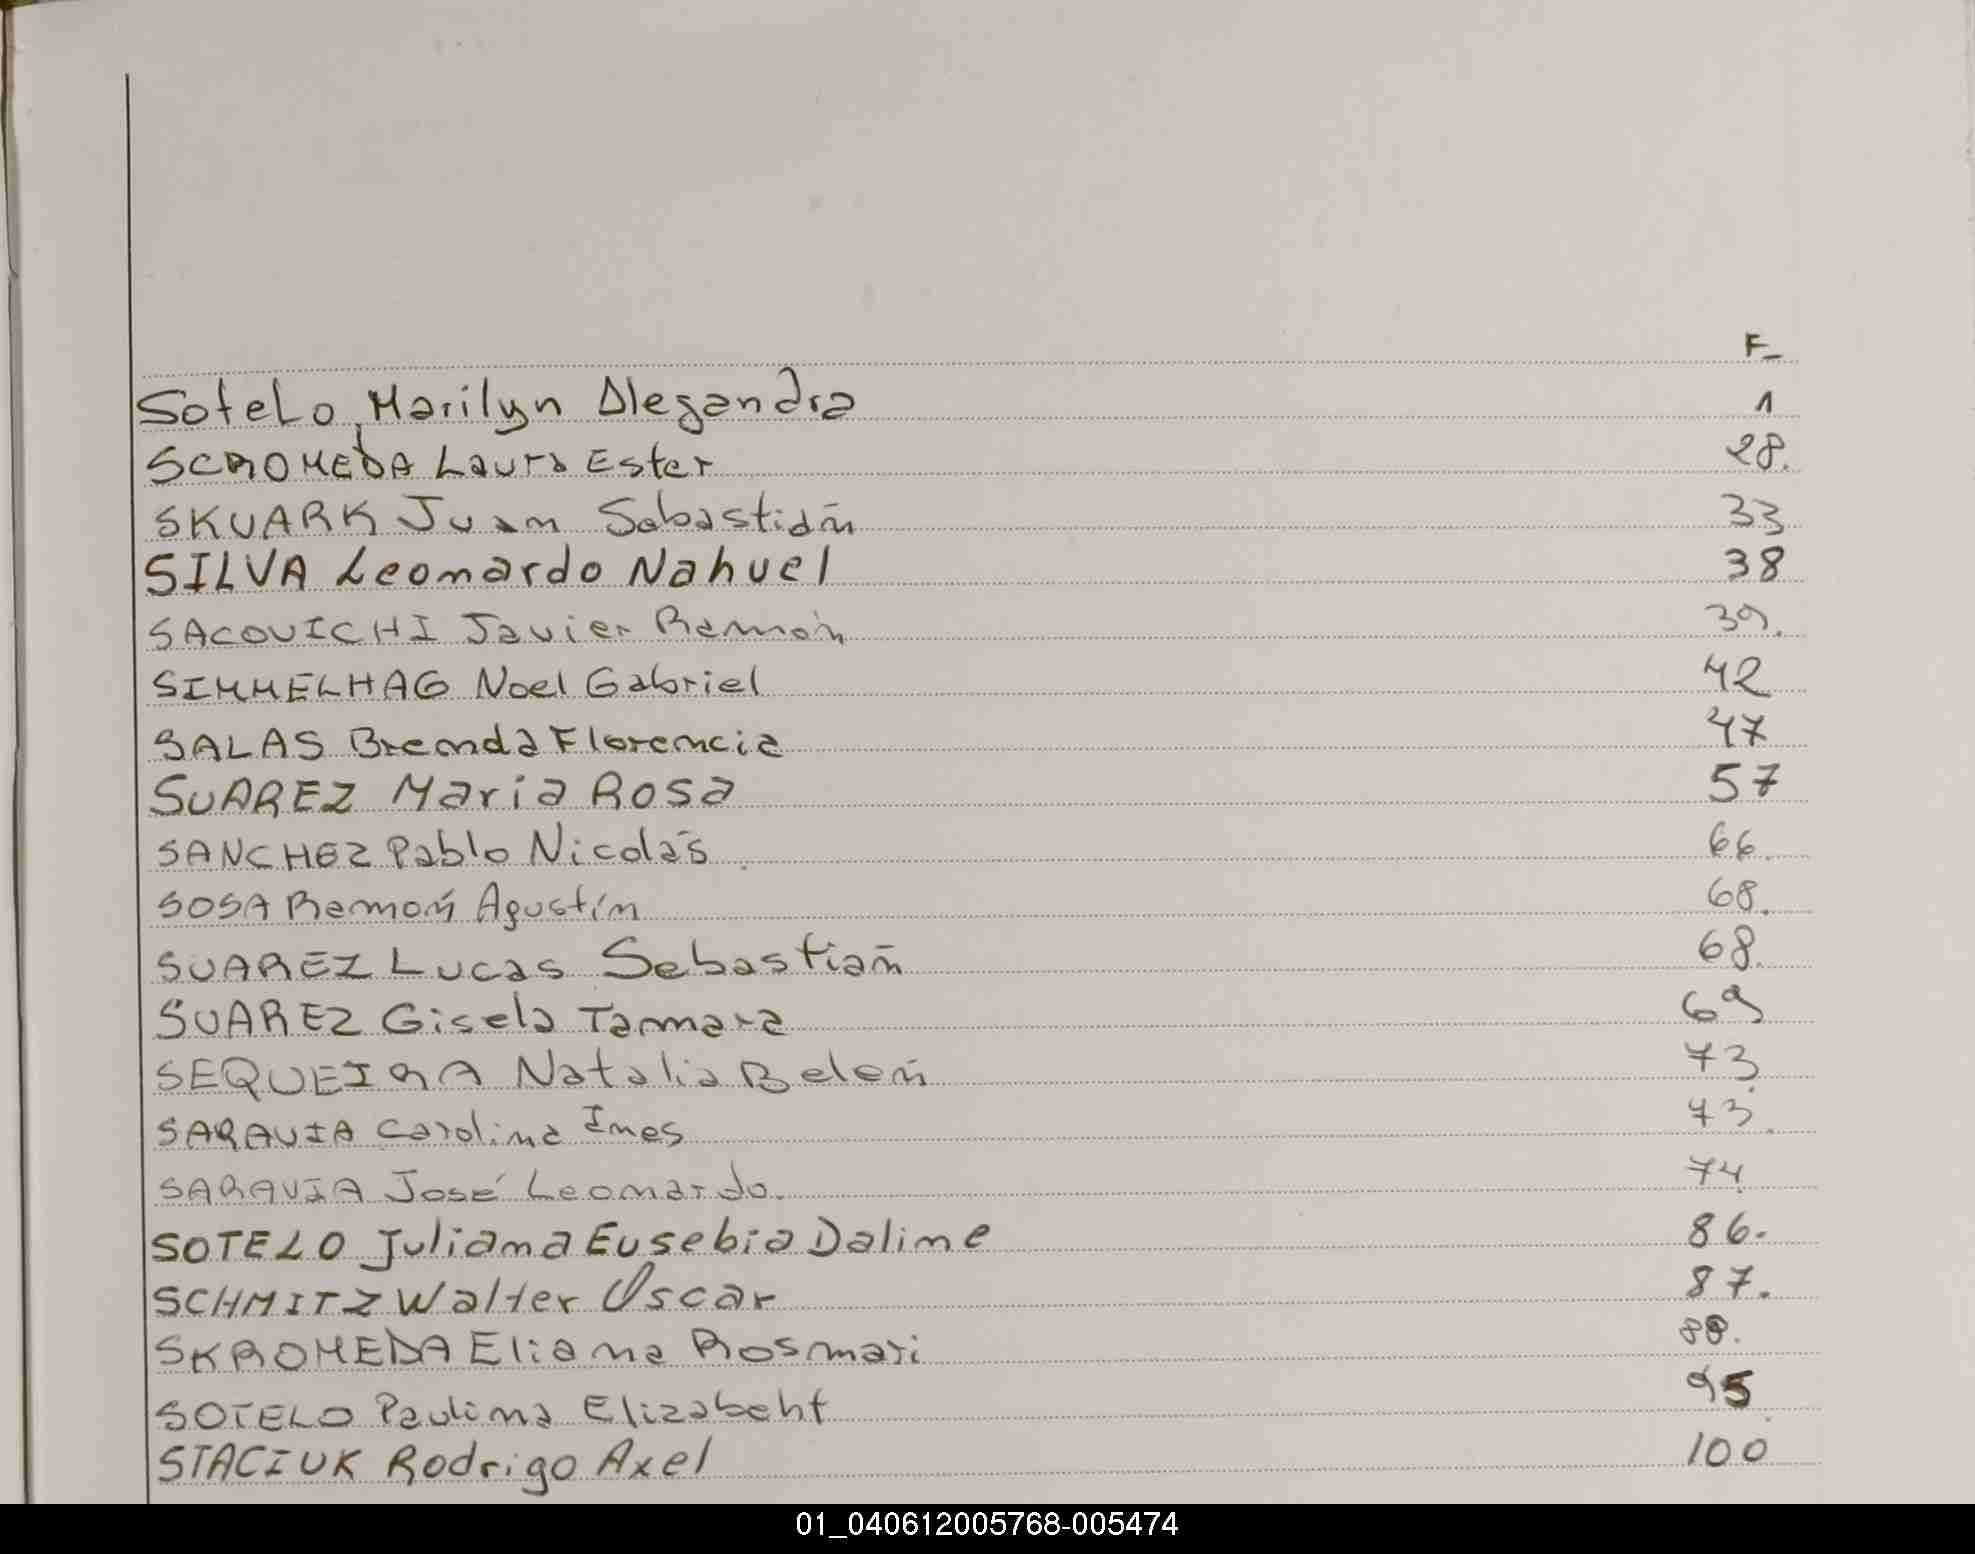 F_
SoteLo, Marilyn Alegandra 1
SCROMEDA Laura Ester 28.
SKUARK Juan Sabastián 33
SILVA Leonardo Nahuel 38
SACOVICHI Javier Ramón 39.
SIMMELHAG Noel Gabriel 42
SALAS Brenda Florencia 47
SUAREZ Maria Rosa 57
SANCHEZ Pablo Nicolás 66.
SOSA Ramón Agustín 68.
SUAREZ Lucas Sebastián 68.
SUAREZ Gisela Tamara 69
SEQUEIRA Natalia Belén 73
SARAVIA Carolina Ines 73.
SARAVIA José Leonardo. 74
SOTELO Juliana Eusebia Daline 86.
SCHMITZ Walter Oscar 87.
SKROMEDA Eliana Rosmari 88.
SOTELO Paulina Elizabeht 95
STACIUK Rodrigo Axel 100
01_040612005768-005474